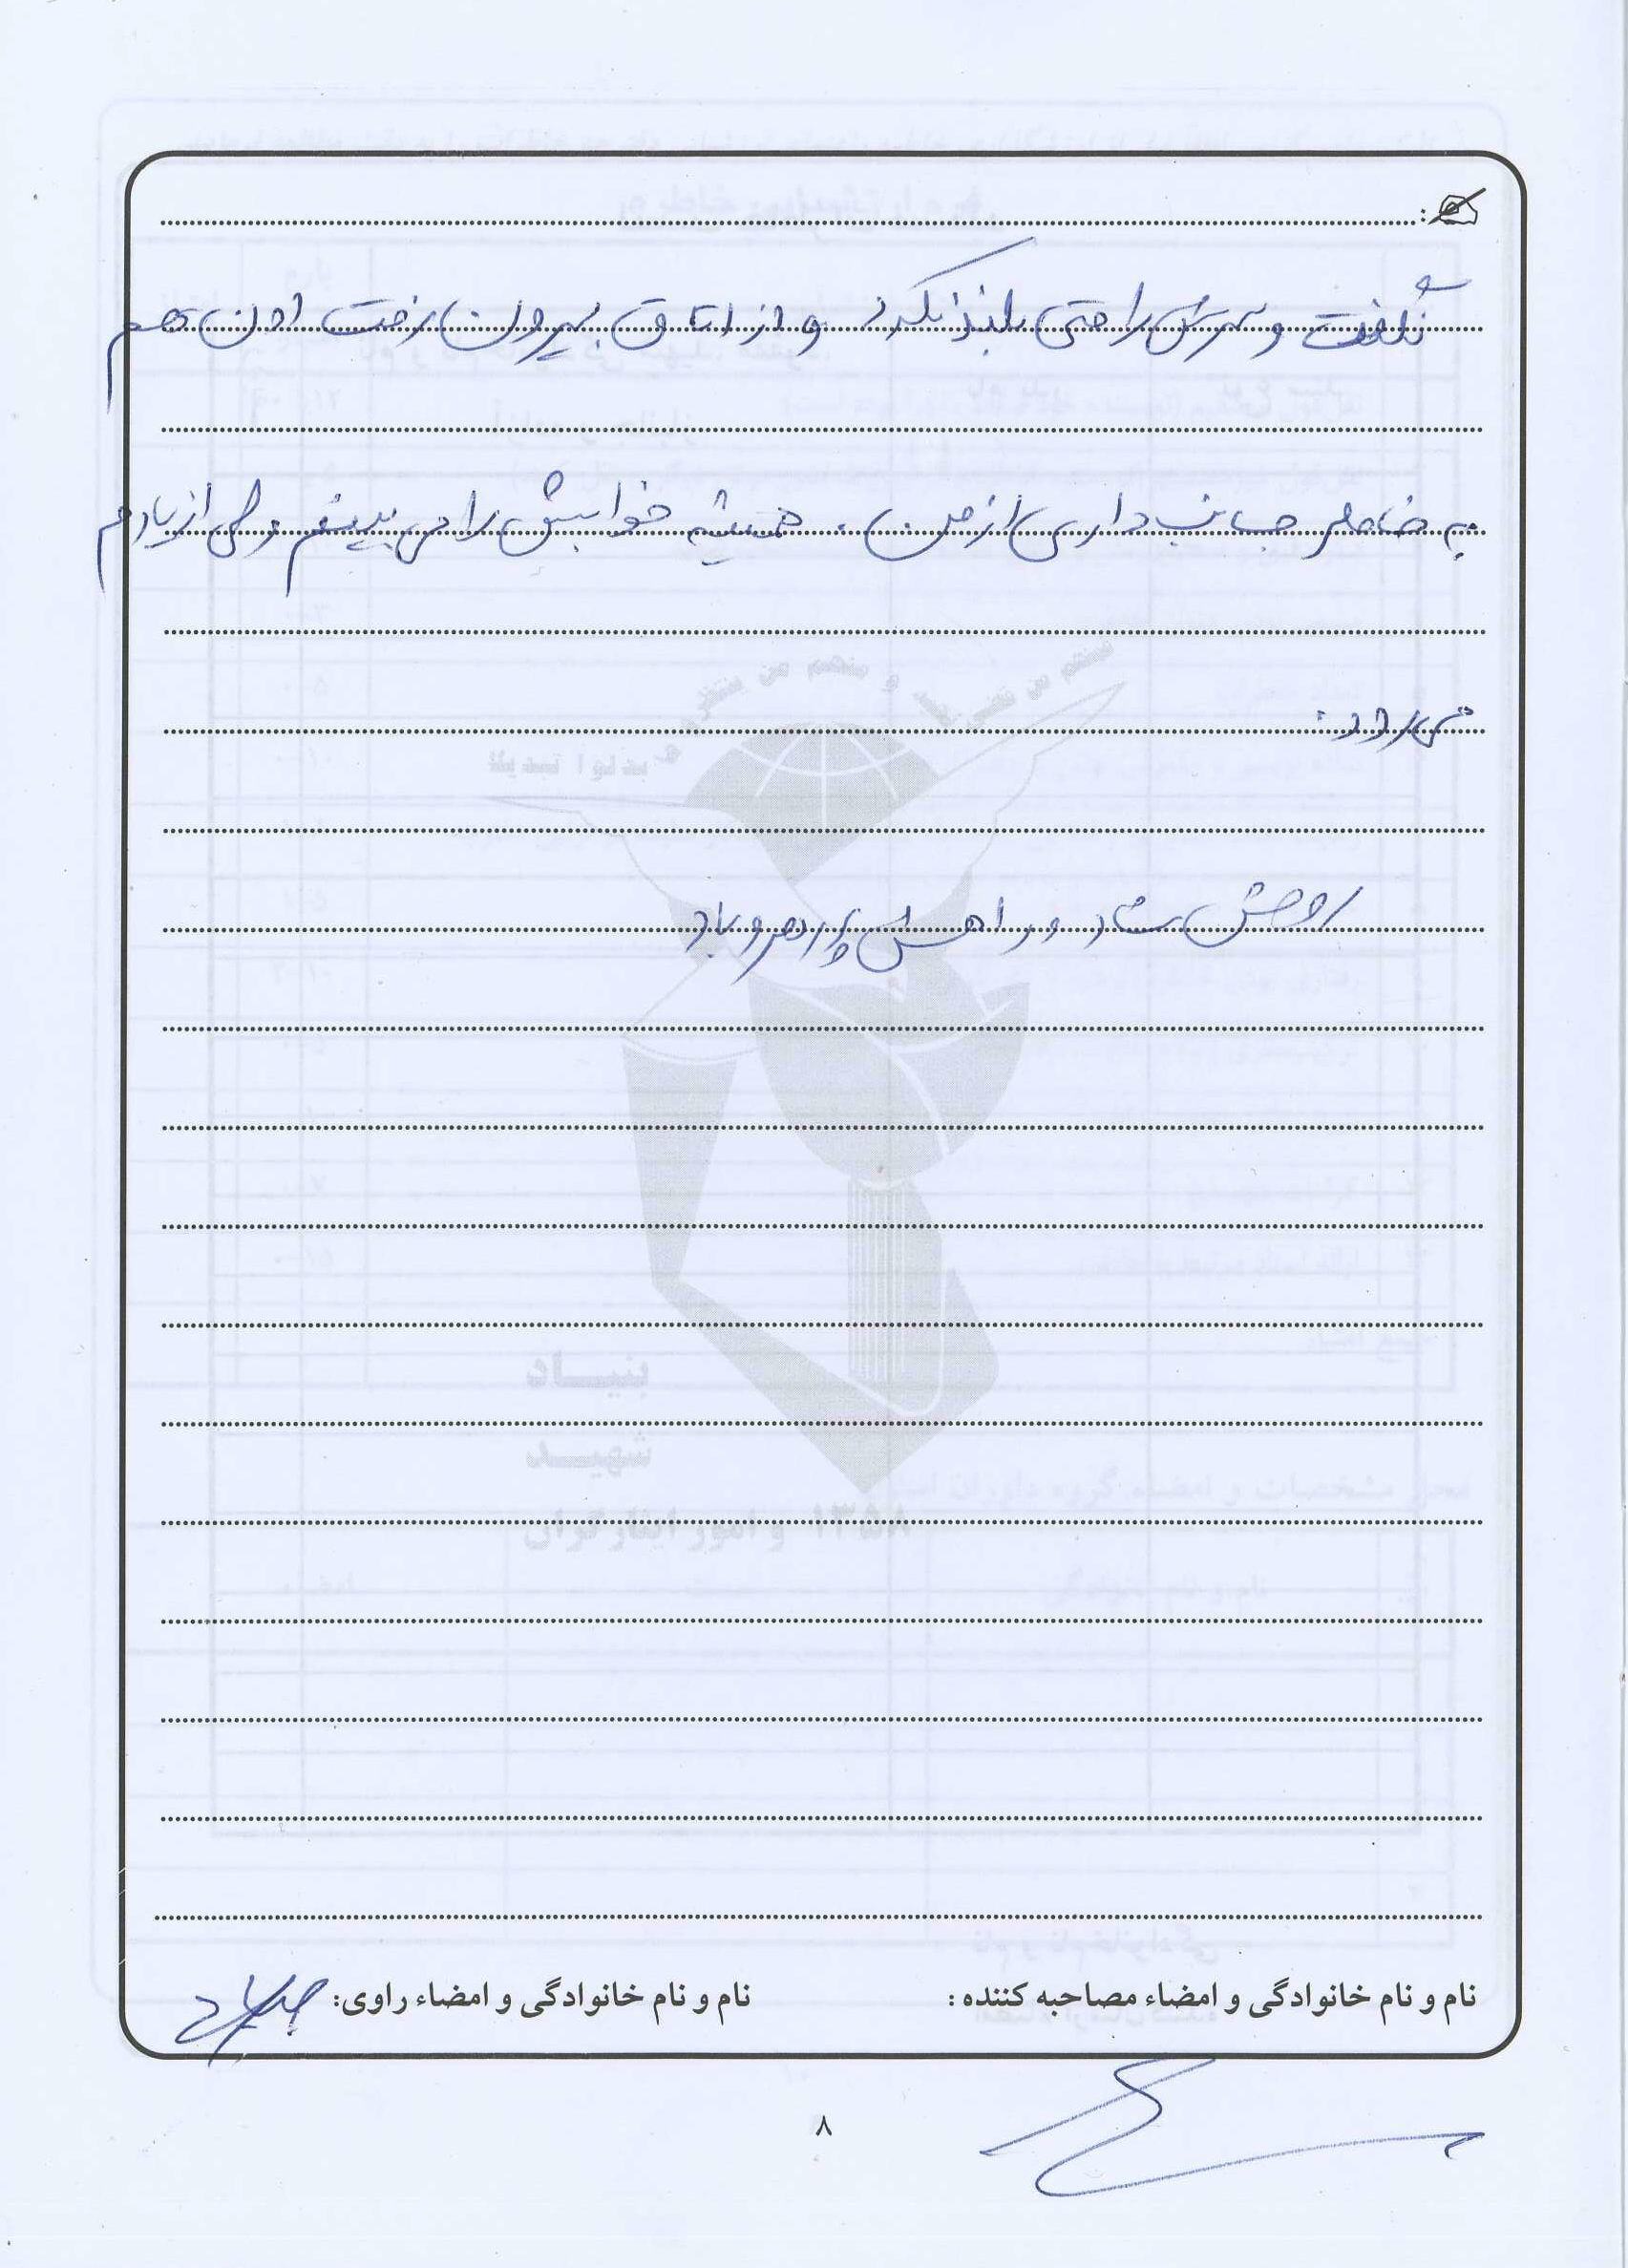 نگفت و سرش را حتی بلند نکرد و از اتاق بیرون رفت اون هم
به خاطر جانب داری از من . همیشه خوابش را می بینم ولی از یادم
می رود .
روحش شاد و راهش پر رهرو باد
نام و نام خانوادگی و امضاء مصاحبه کننده :
نام و نام خانوادگی و امضاء راوی:
۸